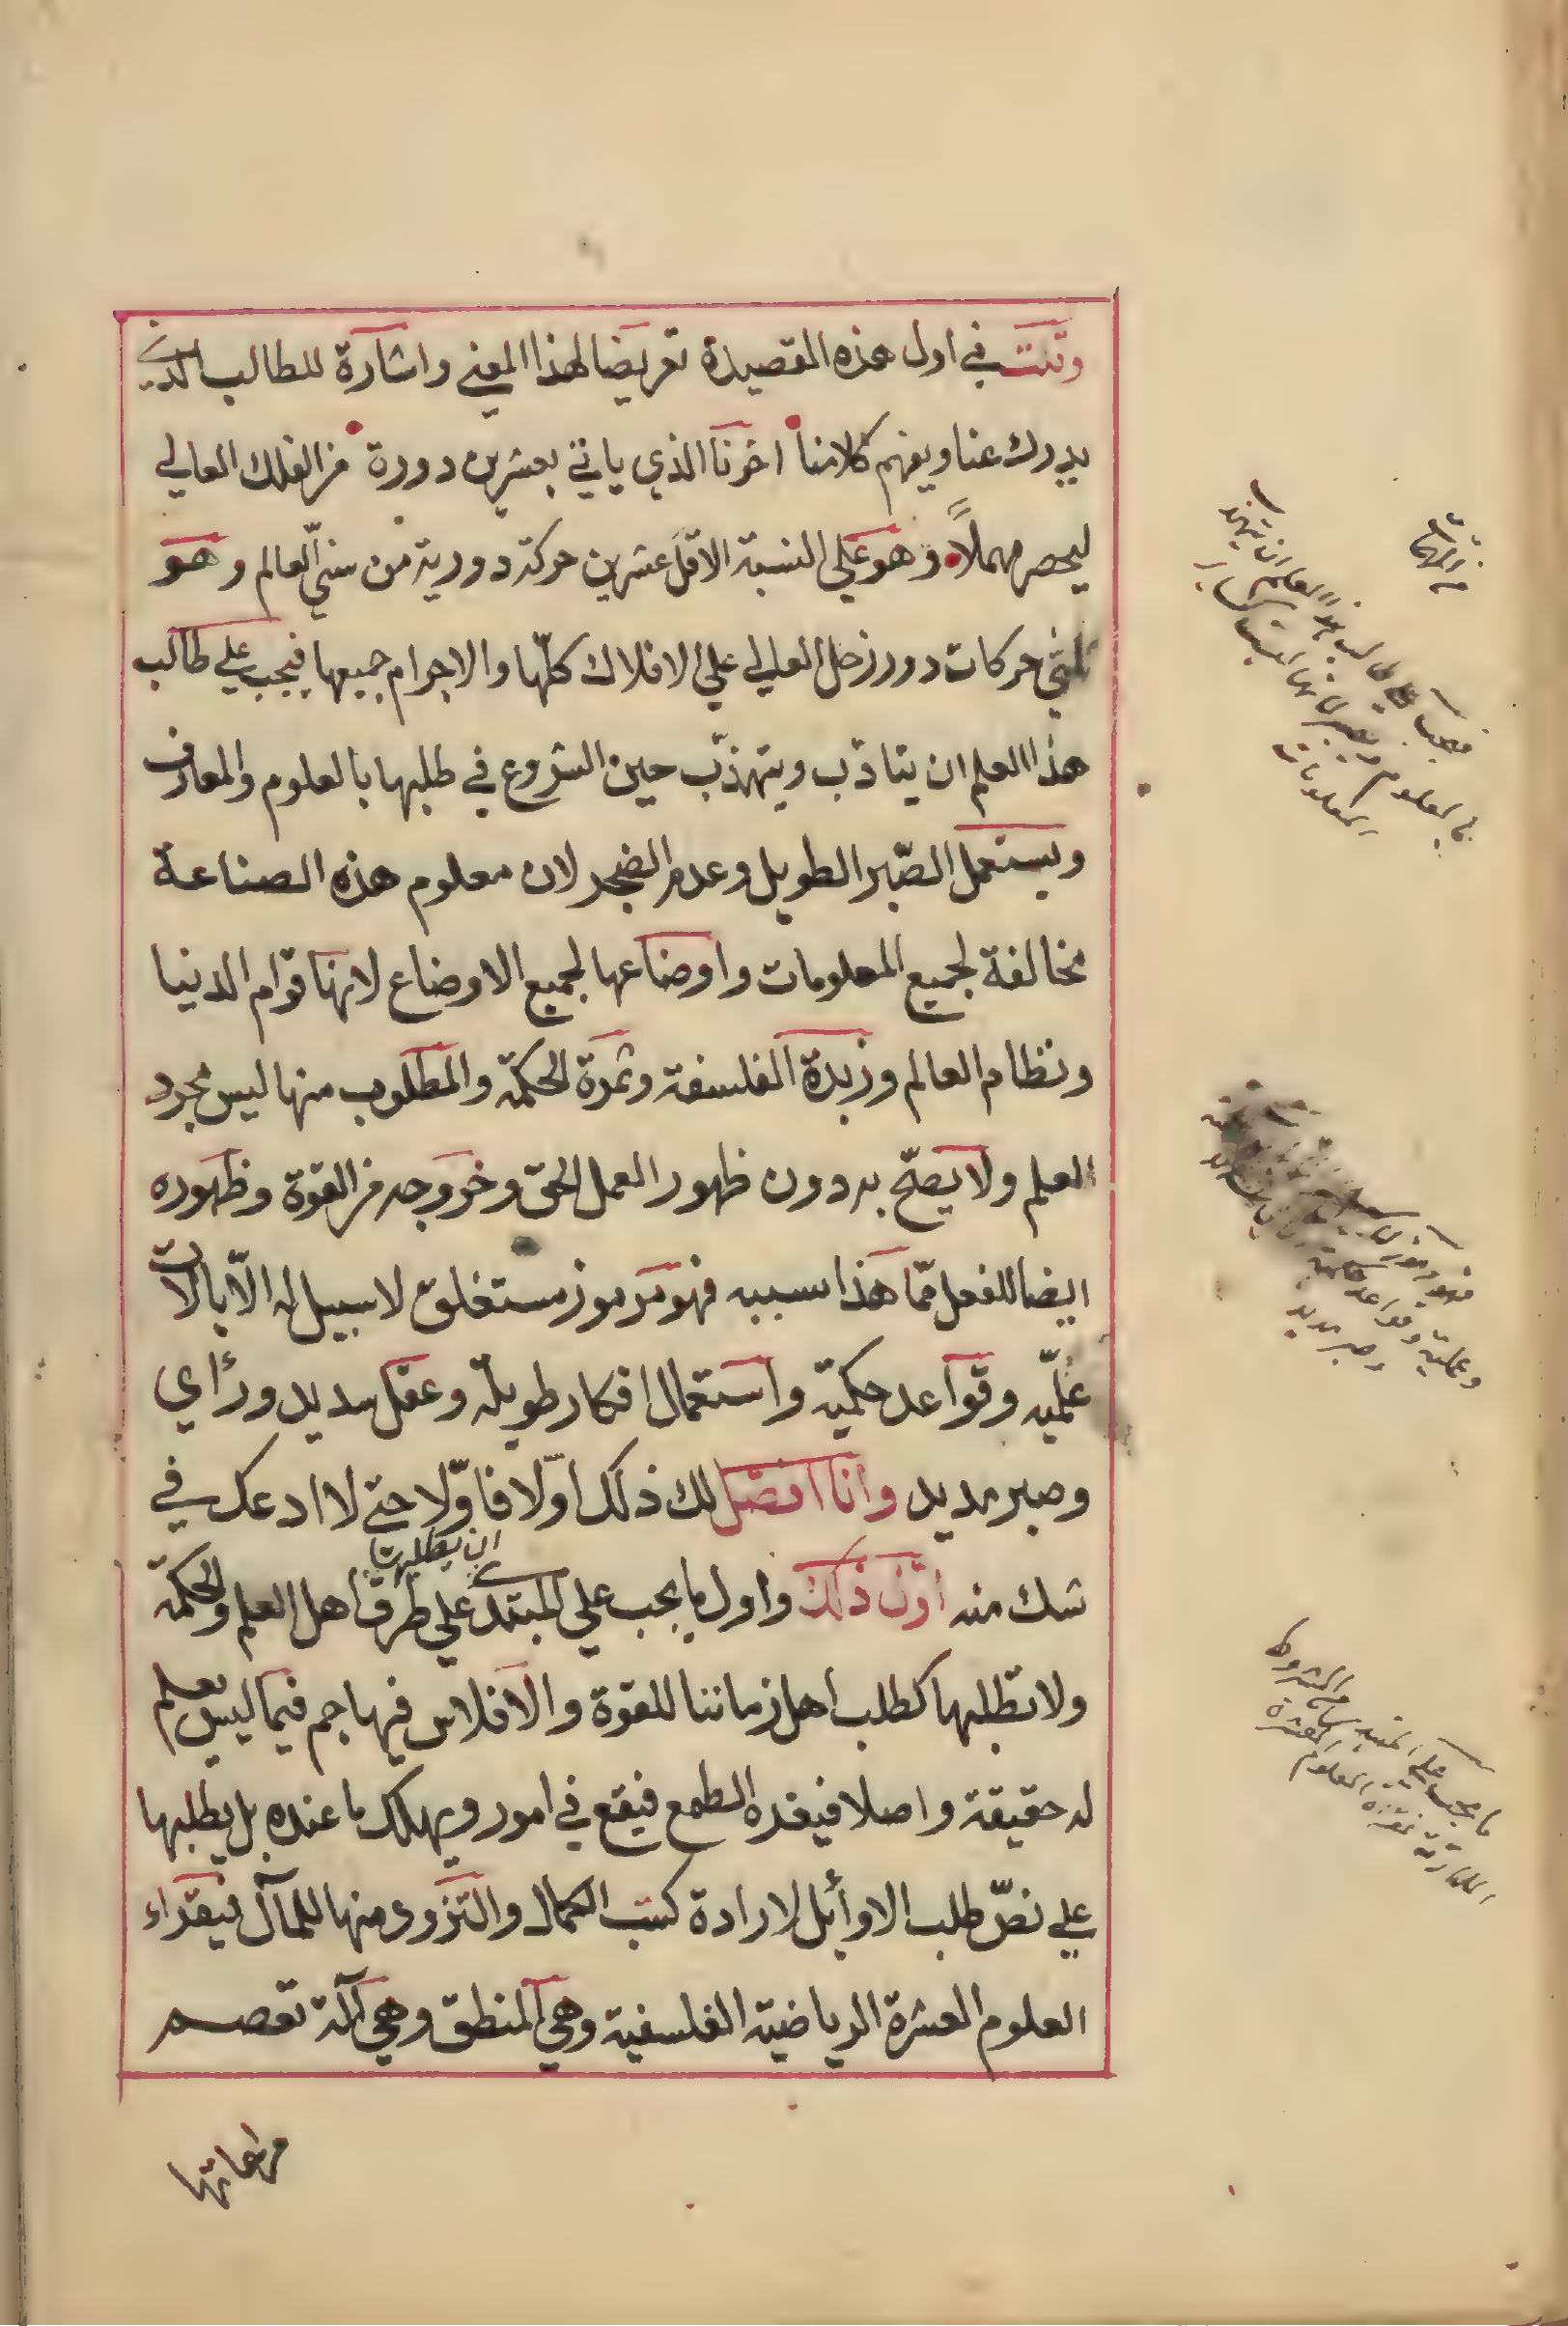 وقلت في اول هذه القصيدة تعريضا لهذا المعني واشارة للطالب الذي
يدرك عنا ويفهم كلامنا اخونا الذي ياتي بعشرين دورة من الفلك العالي
ليحصر مهملاً وهو علي النسبة الاقل عشرين حركة دورية من سني العالم وهو
ثلثي حركات دور زحل العلي علي الافلاك كلّها والاجرام جميعها فيجب علي طالب
هذا العلم ان يتادّب ويتهذّب حين الشروع في طلبها بالعلوم والمعارف
ويستعمل الصّبر الطويل وعدم الضجر لان معلوم هذه الصناعة
مخالفة لجميع المعلومات واوضاعها لجميع الاوضاع لانها قوام الدنيا
ونظام العالم وزبدة الفلسفة وثمرة الحكمة والمطلوب منها ليس مجرد
العلم ولا يصحّ بدون ظهور العمل الحق وخروجه من القوة وظهوره
ايضا للفعل ممّا هذا سببه فهو مرموز مستغلق لا سبيل له الّا بالات
علميّه وقواعد حكمية واستعمال افكار طويلة وعقل سديد ورأي
وصبر مديد وانا افصّل لك ذلك اوّلا فاوّلا حتي لا ادعك في
ان يطلبها
شك منه اوّل ذلك واول ما يجب علي المبتدي علي طرق اهل العلم والحكمة
ولا تطلبها كطلب اهل زماننا للقوة والافلاس فيهاجم فيما ليس يعلم
له حقيقة واصلا فيغده الطمع فيقع في امور ويهلك ما عنده بل يطلبها
علي نصّ طلب الاوائل لارادة كسب الكمال والتزود منها للمآل فيقراء
العلوم العشرة الرياضية الفلسفية وهي المنطق وهي آلة تعصم
مراعاتها
فيجب علي طالب هذا العلم ان يتهذب
بالعلوم
المعلومات
فهو مرموز
وعلمية وقواعد حكمية
وصبر مديد
ما يجب علي المبتدي من الشروط
العلوم العشرة